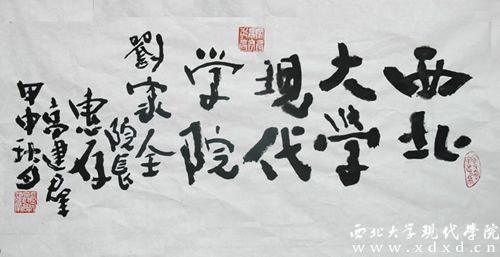 西北
大學
現代
学院
劉家全
院長
惠存
高建群
甲申秋月
西北大学现代学院
www.xdxd.cn